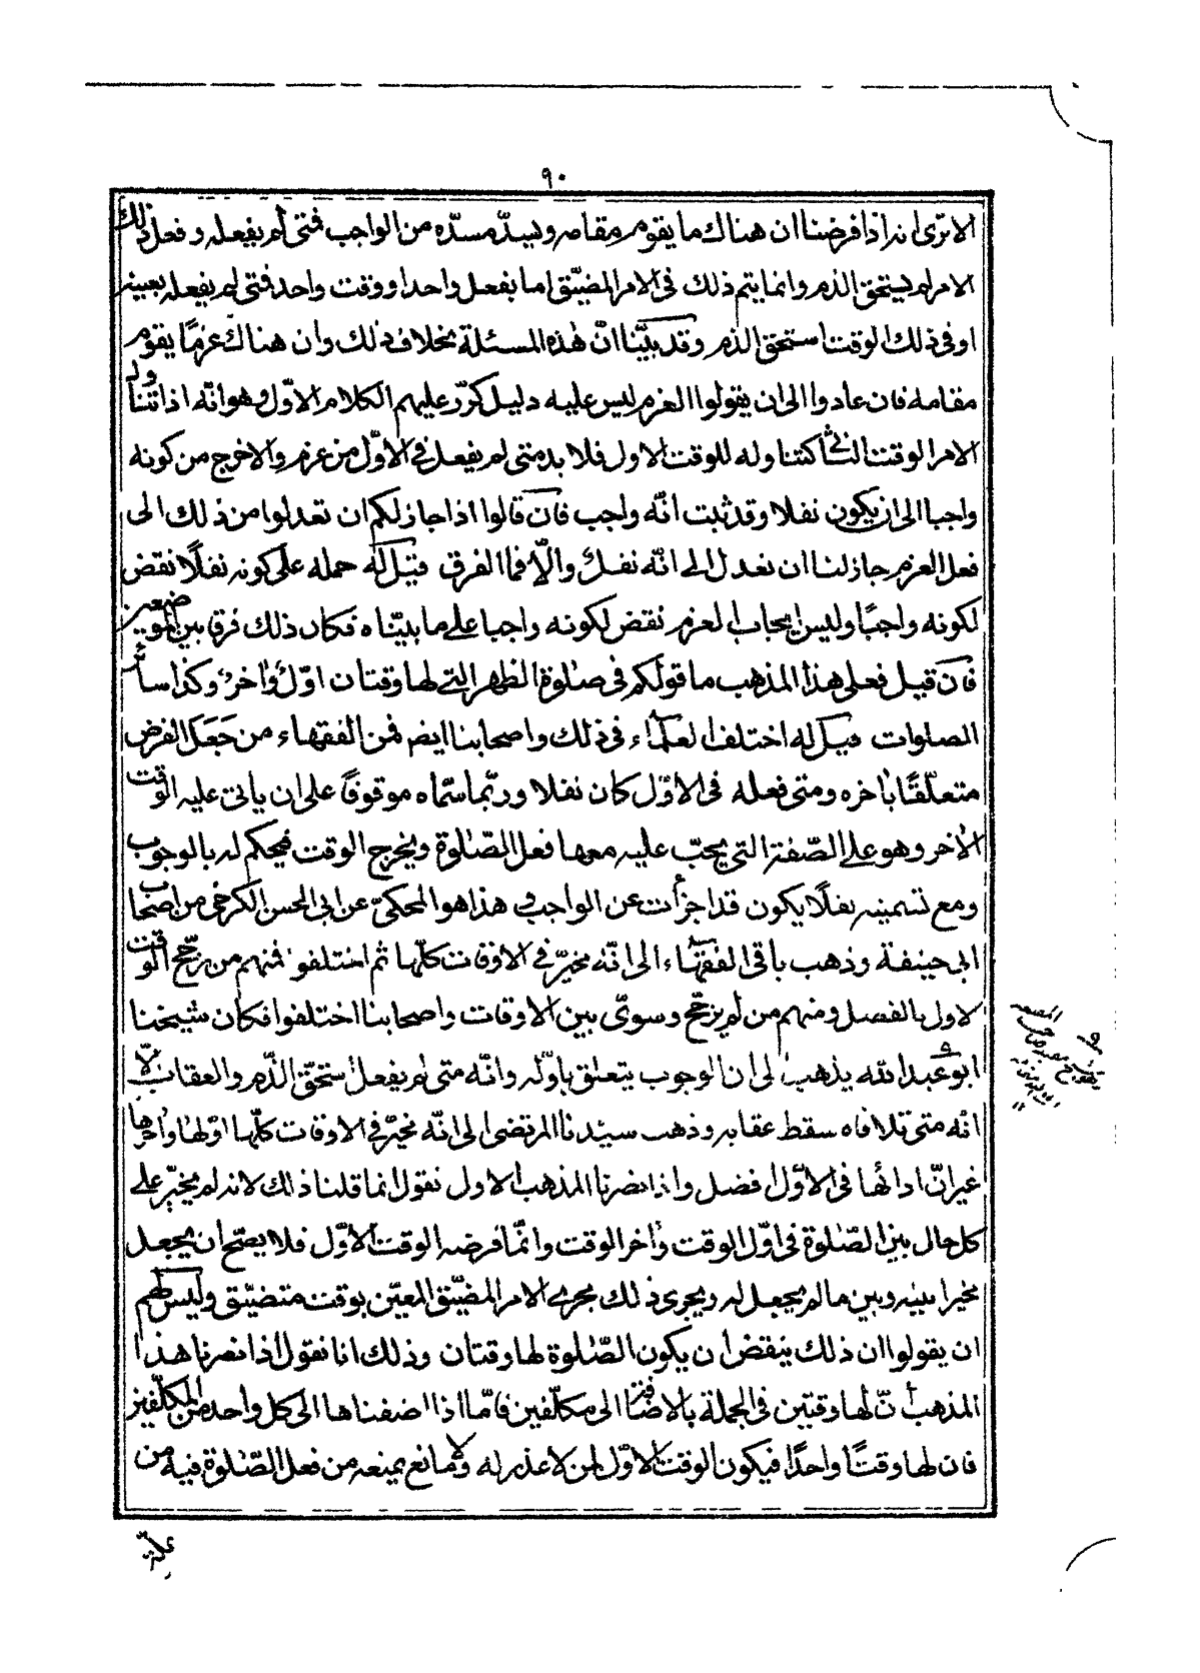 ٩٠
الا ترى انه اذا فرضنا ان هناك ما يقوم مقامه ويسدّ مسدّه من الواجب فمتى لم يفعله وفعل ذلك
الامر لم يستحق الذم وانما يتم ذلك فى الامر المضيّق اما بفعل واحد او وقت واحد فتى لم يفعله بعينه
او فى ذلك الوقت استحق الذم وقد بيّنا انّ هٰذه المسئلة بخلاف ذلك وان هناك عزمًا يقوم
مقامه فان عادوا الى ان يقولوا العزم ليس عليه دليل كرّر عليهم الكلام الاوّل وهو انّه اذا تناول
الامر الوقت الثانى كتناوله للوقت الاول فلا بد متى لم يفعل فى الاوّل من عزم والا خرج من كونه
واجبا الى ان يكون نفلا وقد ثبت انّه واجب فان قالوا اذا جاز لكم ان تعدلوا من ذلك الى
فعل العزم جاز لنا ان نعدل الى انّه نفل والّا فما الفرق قيل له حمله على كونه نفلًا نقض
لكونه واجبًا وليس ايجاب العزم نقض لكونه واجبا على ما بيّناه فكان ذلك فرق بين الموضعين
فان قيل فعلى هذا المذهب ما قولكم فى صلوة الظهر التى لها وقتان اوّل وٰاخر وكذا سائر
الصلوات قيل له اختلف العلماء فى ذلك واصحابنا ايضم فمن الفقهاء من جَعَل الفرض
متعلّقًا بٰاخره ومتى فعله فى الاوّل كان نفلا وربّما سمّاه موقوفًا على ان ياتى عليه الوقت
الاٰخر وهو على الصّفة التى يجب عليه معها فعل الصّلوة ويخرج الوقت فيحكم له بالوجوب
ومع تسميته نفلًا يكون قد اجزأت عن الواجب و هذا هو المحكىّ عن ابى الحسن الكرخى من اصحاب
ابى حنيفة وذهب باقى الفقهاء الى انّه مخيّر فى الاوقات كلّها ثم اختلفوا فمنهم من رجّح الوقت
الاول بالفضل ومنهم من لم يرجّح وسوّى بين الاوقات واصحابنا اختلفوا فكان شيخنا
ابو عبد الله يذهب الى ان الوجوب يتعلق باوّله وانّه متى لم يفعل استحقّ الذّم والعقاب الّا
انه متى تلافاه سقط عقابه وذهب سيّدنا المرتضى الى انّه مخيّر فى الاوقات كلّها اوّلها وٰاخرها
غير انّ ادائها فى الاوّل افضل واذا نصرنا المذهب الاول نقول انما قلنا ذلك لانه لم يخيّر على
كل حال بين الصّلوة فى اوّل الوقت وٰاخر الوقت وانّما فرضه الوقت الاوّل فلا يصّح ان يجعل
مخيرا بينه وبين ما لم يجعل له ويجرى ذلك مجرى الامر المضيّق المعيّن بوقت متضيّق وليس لهم
ان يقولوا ان ذلك ينقض ان يكون الصّلوة لها وقتان وذلك انا نقول اذا نصرنا هذا
المذهب انّ لها وقتين فى الجملة بالاضافة الى مكلّفين فامّا اذا اضفناها الى كل واحد من المكلّفين
فان لها وقتًا واحدًا فيكون الوقت الاوّل لمن لا عذر له ولا مانع يمنعه من فعل الصّلوة فيه من
علة